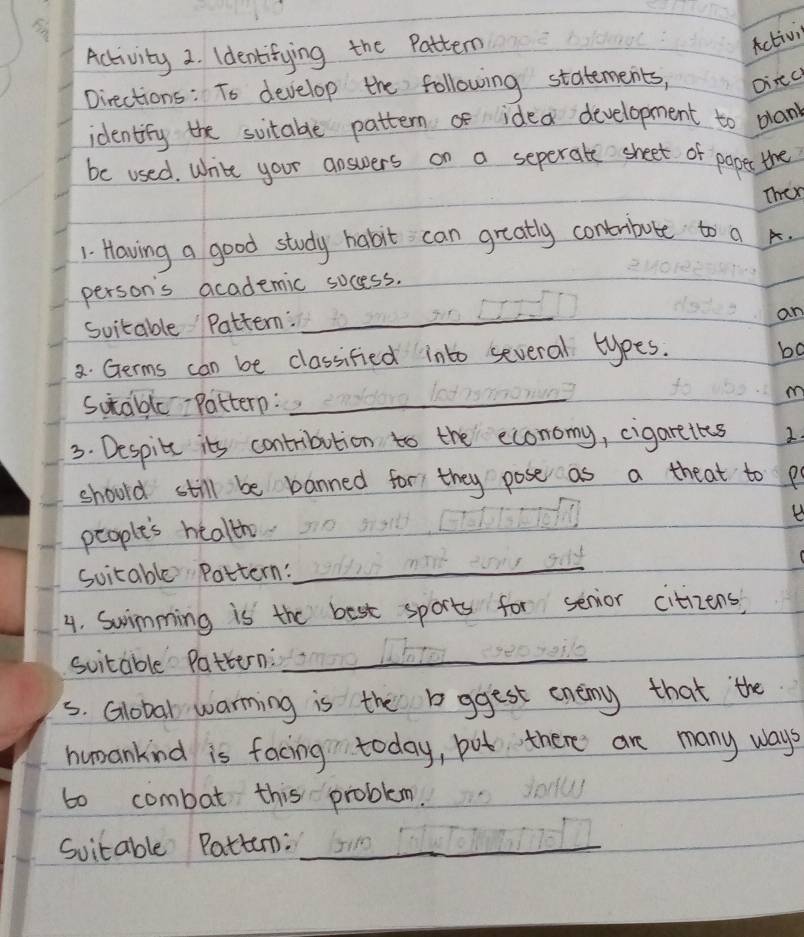 Activity 2. Identifying the Pattern
Directions: To develop the following statements,
identify the suitable pattern of idea development to
be used. Write your answers on a seperate sheet of paper
1. Having a good study habit can greatly contribute to a
person's academic success.
Suitable Pattern:
2. Germs can be classified into several types.
Suitable Pattern:
3. Despite its contribution to the economy, cigarettes
should still be banned for they pose as a theat to
people's health
Suitable Pattern:
4. Swimming is the best sports for senior citizens.
Suitable Pattern:
5. Global warming is the b ggest enemy that the
humankind is facing today, but there are many ways
to combat this problem.
Suitable Pattern:
Activi
Direc
blank
the
Then
A.
an
bo
m
2.